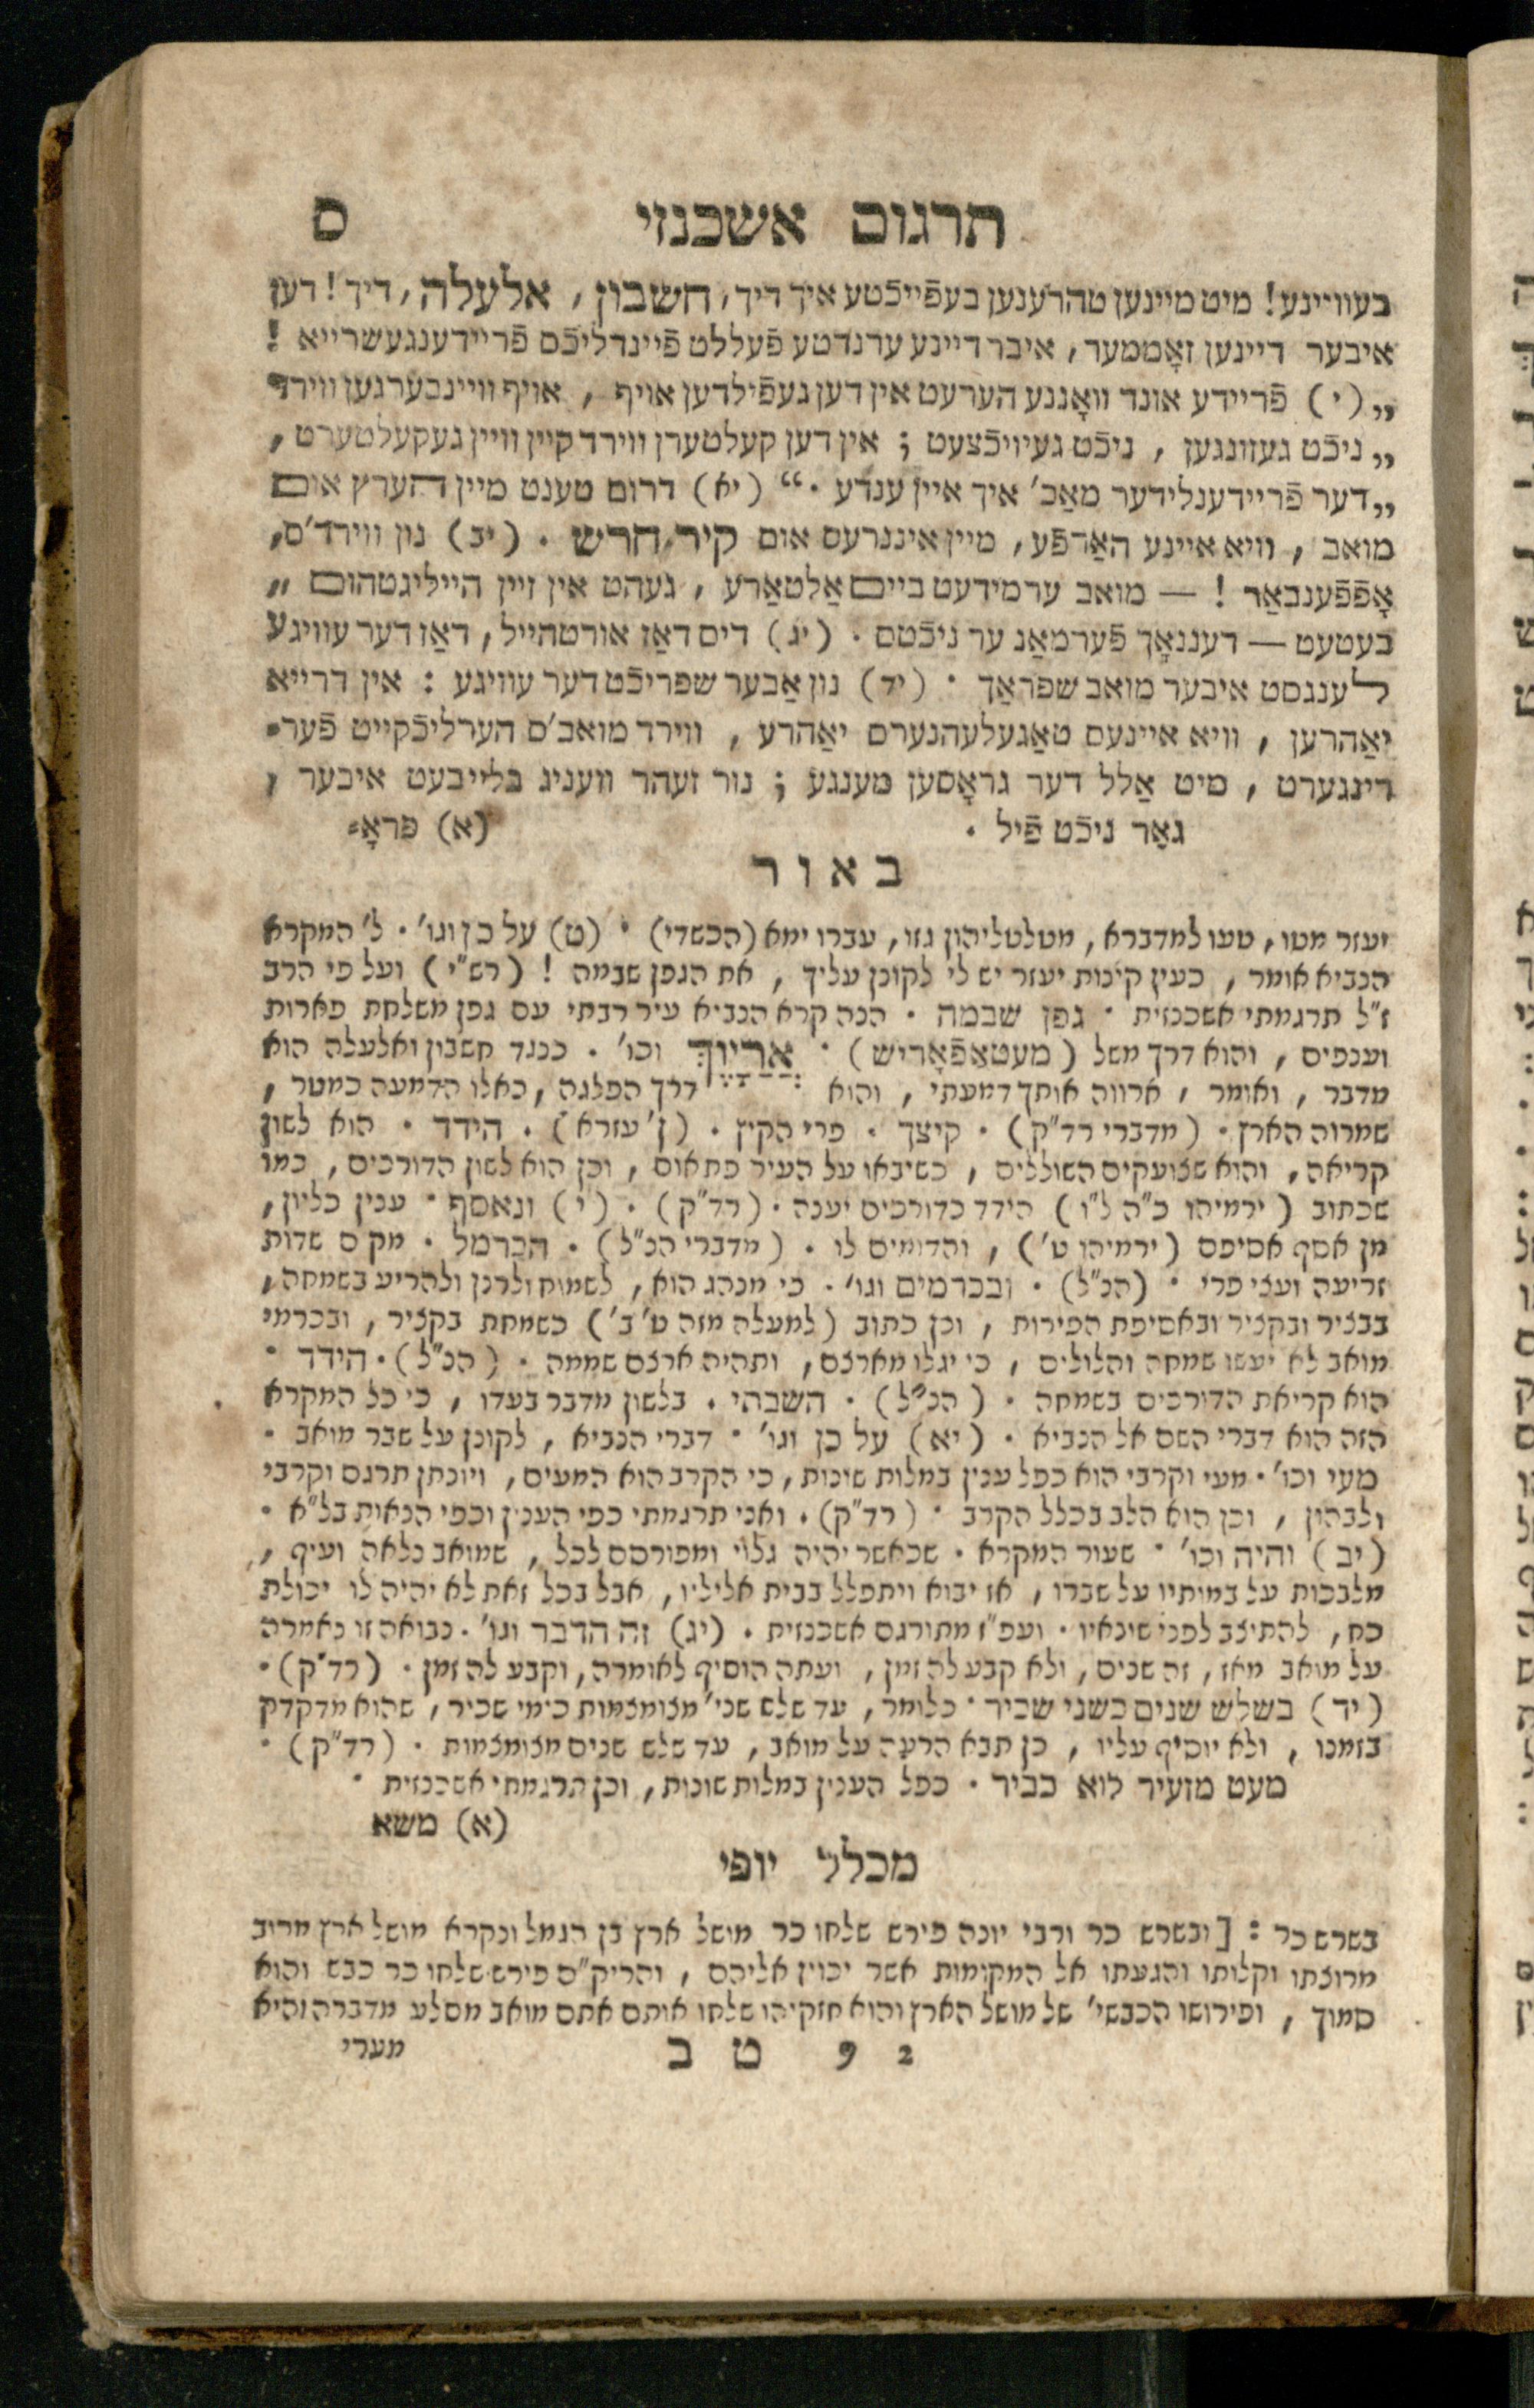 תרגום אשכנזי ס
בעוויינע! מיט מיינען טהרענען בעפֿייכֿטע איך דיך, חשבון, אלעלה, דיך! דען
איבער דיינען זאָממער, איבר דיינע ערנדטע פֿעללט פֿיינדליכֿס פֿריידענגעשרייא !
„(י) פֿריידע אונד וואָננע הערעט אין דען געפֿילדען אויף , אויף וויינבערגען ווירד
„ניכֿט געזונגען , ניכֿט געיויכֿצעט ; אין דען קעלטערן ווירד קיין וויין געקעלטערט ,
„דער פֿריידענלידער מאַכ' איך איין ענדע ." (יא) דרום טענט מיין הערץ אום
מואב , וויא איינע האַרפֿע, מיין אינגרעס אום קיר חרש . (יב) נון ווירד'ס,
אָפֿפֿענבאַר ! — מואב ערמידעט ביים אַלטאַרע , געהט אין זיין הייליגטהום „
בעטעט — דעננאָך פֿערמאַג ער ניכֿטס . (יג) דיס דאַז אורטהייל, דאַז דער עוויגע
לענגסט איבער מואב שפראַך . (יד) נון אַבער שפריכֿט דער עוויגע : אין דרייא
יאַהרען , וויא איינעס טאַגעלעהנערס יאַהרע , ווירד מואב'ס הערליכֿקייט פֿער-
רינגערט , מיט אַלל דער גראָסען מענגע ; נור זעהר וועניג בלייבעט איבער ,
גאַר ניכֿט פֿיל . (א) פראָ-
באור
יעזר מטו, טעו למדברא, מטלטליהון גזו, עברו ימא (הכשדי) . (ט) על כן וגו' . ל' המקרא
הנביא אומר , כעין קינות יעזר יש לי לקונן עליך , את הגפן שבמה ! (רש"י) ועל פי הרב
ז"ל תרגמתי אשכנזית . גפן שבמה . הנה קרא הנביא עיר רבתי עם גפן משלחת פארות
וענפים , והוא דרך משל (מעטאַפֿאָריש) . אֲרַיָּוֶךְ וכו' . כנגד חשבון ואלעלה הוא
מדבר , ואומר , ארווה אותך דמעתי , והוא דרך הפלגה , כאלו הדמעה כמטר ,
שמרוה הארץ . (מדברי רד"ק) . קיצך . פרי הקיץ . (ן' עזרא) . הידד . הוא לשון
קריאה, והוא שצועקים השוללים , כשיבאו על העיר פתאום , וכן הוא לשון הדורכים , כמו
שכתוב (ירמיהו כ"ה ל"ו) הידד כדורכים יענה . (רד"ק) . (י) ונאסף . ענין כליון,
מן אסף אסיפם (ירמיהו ט') , והדומים לו . (מדברי הנ"ל) . הכרמל . מקום שדות
זריעה ועצי פרי . (הנ"ל) . ובכרמים וגו' . כי מנהג הוא , לשמוח ולרנן ולהריע בשמחה,
בבציר ובקציר ובאסיפת הפירות , וכן כתוב (למעלה מזה ט' ב') כשמחת בקציר , ובכרמי
מואב לא יעשו שמחה והלולים , כי יגלו מארצם, ותהיה ארצם שממה . (הנ"ל) . הידד .
הוא קריאת הדורכים בשמחה . (הנ"ל) . השבתי . בלשון מדבר בעדו , כי כל המקרא
הזה הוא דברי השם אל הנביא . (יא) על כן וגו' . דברי הנביא , לקונן על שבר מואב .
מעי וכו' . מעי וקרבי הוא כפל ענין במלות שונות, כי הקרב הוא המעים, ויונתן תרגם וקרבי
ולבהון , וכן הוא הלב בכלל הקרב . (רד"ק) . ואני תרגמתי כפי הענין וכפי הנאות בל"א .
(יב) והיה וכו' . שעור המקרא . שכאשר יהיה גלוי ומפורסם לכל, שמואב נלאה ועיף ,
מלבכות על במותיו על שברו , אז יבוא ויתפלל בבית אליליו, אבל בכל זאת לא יהיה לו יכולת
כח, להתיצב לפני שונאיו . ועפ"ז מתורגם אשכנזית . (יג) זה הדבר וגו' . נבואה זו נאמרה
על מואב מאז, זה שנים, ולא קבע לה זמן, ועתה הוסיף לאומרה, וקבע לה זמן . (רד"ק) .
(יד) בשלש שנים כשני שכיר . כלומר, עד שלש שני' מצומצמות כימי שכיר, שהוא מדקדק
בזמנו , ולא יוסיף עליו , כן תבא הרעה על מואב, עד שלש שנים מצומצמות . (רד"ק) .
מעט מזעיר לוא כביר . כפל הענין במלות שונות, וכן תרגמתי אשכנזית .
(א) משא
מכלל יופי
בשרש כר : [ובשרש כר ורבי יונה פירש שלחו כר מושל ארץ בן הגמל ונקרא מושל ארץ מרוב
מרוצתו וקלותו והגעתו אל המקומות אשר יכוין אליהם , והריק"ם פירש שלחו כר כבש והוא
סמוך , ופירושו הכבשי' של מושל הארץ והוא חזקיהו שלחו אותם אתם מואב מסלע מדברה והיא
ט ב 9 2 מערי